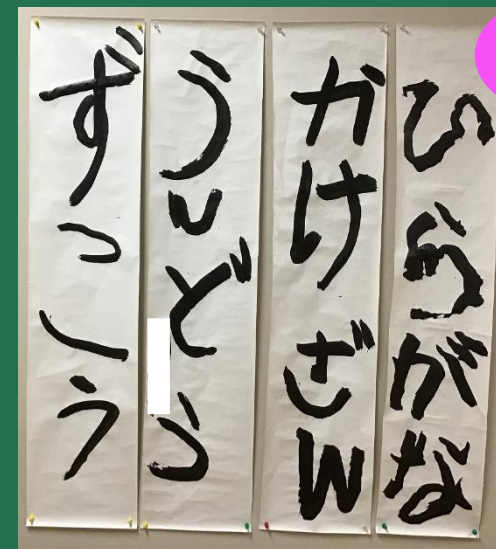 ひらがな
かけざW
ういどう
ずこう